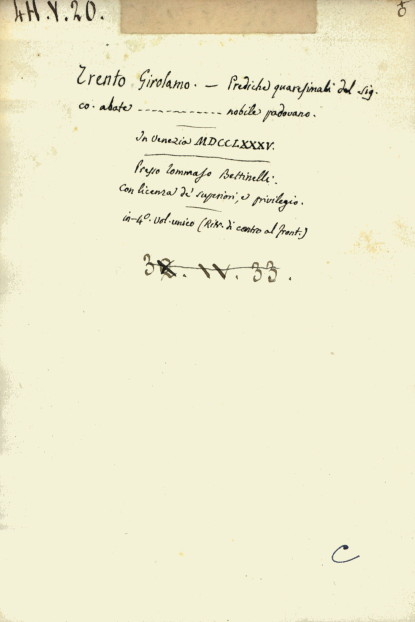 4H.V.20.
Trento Girolamo. — Prediche quaresimali del sig.
co. abate ------------- nobile padovano.
In Venezia MDCCLXXXV.
Presso Tommaso Bettinelli.
Con licenza de' superiori, e privilegio.
in-4º. vol. unico (Ritr. di contro al front.)
38. IV. 33.
C